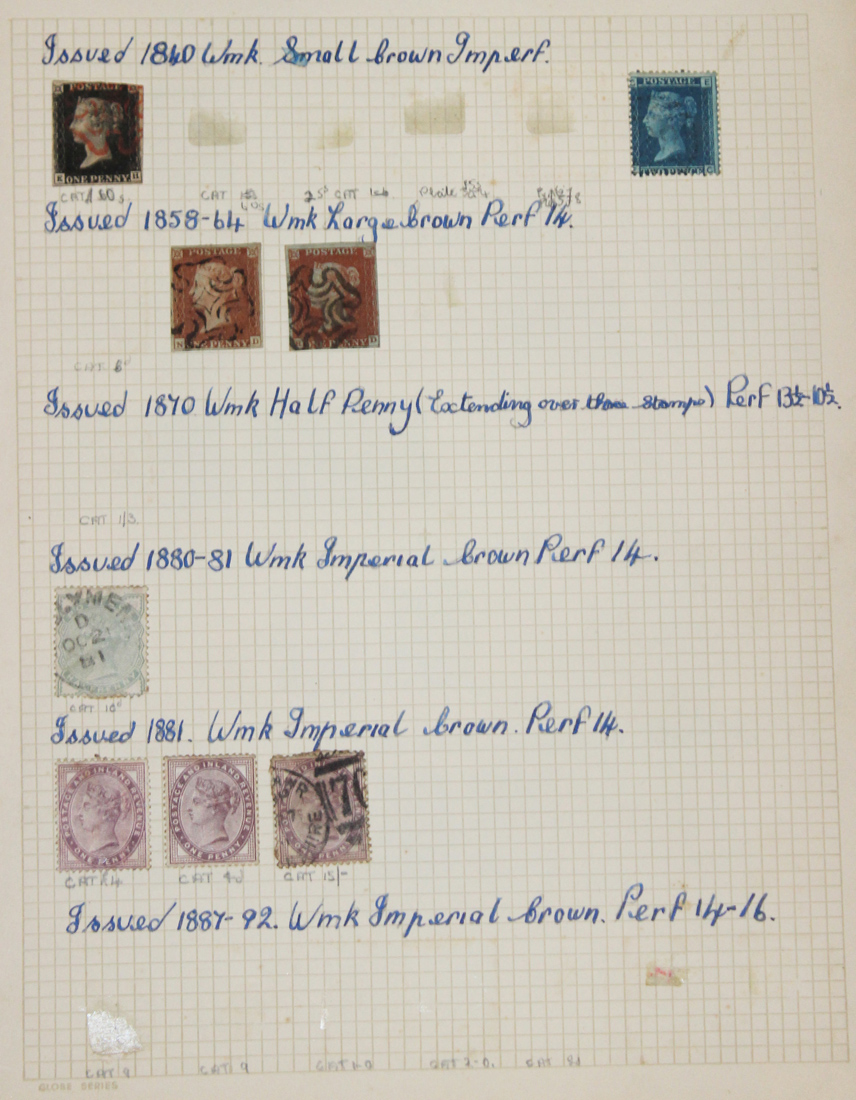 Issued 1840 Wmk. Small brown Imperf.
POSTAGE
K ONE PENNY H
POSTAGE
CAT
CAT
CAT
Plate
Issued 1858-64 Wmk Large brown Perf 14.
POSTAGE
N ONE PENNY D
POSTAGE
PENNY D
CAT 6d
Issued 1870 Wmk Half Penny (Extending over three stamps) Perf 13½-10½.
CAT 1/3
Issued 1880-81 Wmk Imperial brown Perf 14.
LYMEN
D
OC 21
81
CAT 10d
Issued 1881. Wmk Imperial brown. Perf 14.
POSTAGE AND INLAND REVENUE
ONE PENNY
POSTAGE AND INLAND REVENUE
ONE PENNY
CAT
CAT
CAT 15/-
Issued 1887-92. Wmk Imperial brown. Perf 14-16.
CAT 9
CAT 9
CAT
CAT 2-0.
CAT 8d
GLOBE SERIES